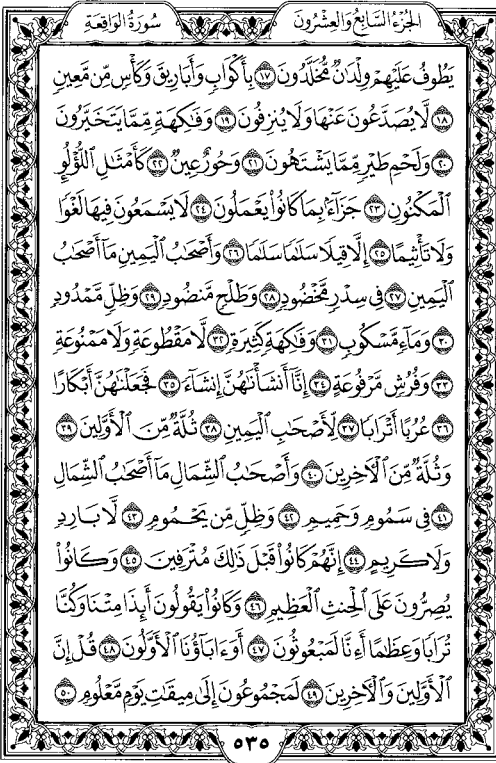 سُورَةُ الوَاقِعَةِ
الجُزْءُ السَّابِعُ وَالعِشْرُونَ
يَطُوفُ عَلَيْهِمْ وِلْدَٰنٌ مُّخَلَّدُونَ ١٧ بِأَكْوَابٍ وَأَبَارِيقَ وَكَأْسٍ مِّن مَّعِينٍ
١٨ لَّا يُصَدَّعُونَ عَنْهَا وَلَا يُنزِفُونَ ١٩ وَفَٰكِهَةٍ مِّمَّا يَتَخَيَّرُونَ
٢٠ وَلَحْمِ طَيْرٍ مِّمَّا يَشْتَهُونَ ٢١ وَحُورٌ عِينٌ ٢٢ كَأَمْثَٰلِ ٱللُّؤْلُوِٕ
ٱلْمَكْنُونِ ٢٣ جَزَآءًۢ بِمَا كَانُوا۟ يَعْمَلُونَ ٢٤ لَا يَسْمَعُونَ فِيهَا لَغْوًا
وَلَا تَأْثِيمًا ٢٥ إِلَّا قِيلًا سَلَٰمًا سَلَٰمًا ٢٦ وَأَصْحَٰبُ ٱلْيَمِينِ مَآ أَصْحَٰبُ
ٱلْيَمِينِ ٢٧ فِى سِدْرٍ مَّخْضُودٍ ٢٨ وَطَلْحٍ مَّنضُودٍ ٢٩ وَظِلٍّ مَّمْدُودٍ
٣٠ وَمَآءٍ مَّسْكُوبٍ ٣١ وَفَٰكِهَةٍ كَثِيرَةٍ ٣٢ لَّا مَقْطُوعَةٍ وَلَا مَمْنُوعَةٍ
٣٣ وَفُرُشٍ مَّرْفُوعَةٍ ٣٤ إِنَّآ أَنشَأْنَٰهُنَّ إِنشَآءً ٣٥ فَجَعَلْنَٰهُنَّ أَبْكَارًا
٣٦ عُرُبًا أَتْرَابًا ٣٧ لِّأَصْحَٰبِ ٱلْيَمِينِ ٣٨ ثُلَّةٌ مِّنَ ٱلْأَوَّلِينَ ٣٩
وَثُلَّةٌ مِّنَ ٱلْأَخِرِينَ ٤٠ وَأَصْحَٰبُ ٱلشِّمَالِ مَآ أَصْحَٰبُ ٱلشِّمَالِ
٤١ فِى سَمُومٍ وَحَمِيمٍ ٤٢ وَظِلٍّ مِّن يَحْمُومٍ ٤٣ لَّا بَارِدٍ
وَلَا كَرِيمٍ ٤٤ إِنَّهُمْ كَانُوا۟ قَبْلَ ذَٰلِكَ مُتْرَفِينَ ٤٥ وَكَانُوا۟
يُصِرُّونَ عَلَى ٱلْحِنثِ ٱلْعَظِيمِ ٤٦ وَكَانُوا۟ يَقُولُونَ أَئِذَا مِتْنَا وَكُنَّا
تُرَابًا وَعِظَٰمًا أَءِنَّا لَمَبْعُوثُونَ ٤٧ أَوَءَابَآؤُنَا ٱلْأَوَّلُونَ ٤٨ قُلْ إِنَّ
ٱلْأَوَّلِينَ وَٱلْأَخِرِينَ ٤٩ لَمَجْمُوعُونَ إِلَىٰ مِيقَٰتِ يَوْمٍ مَّعْلُومٍ ٥٠
٥٣٥